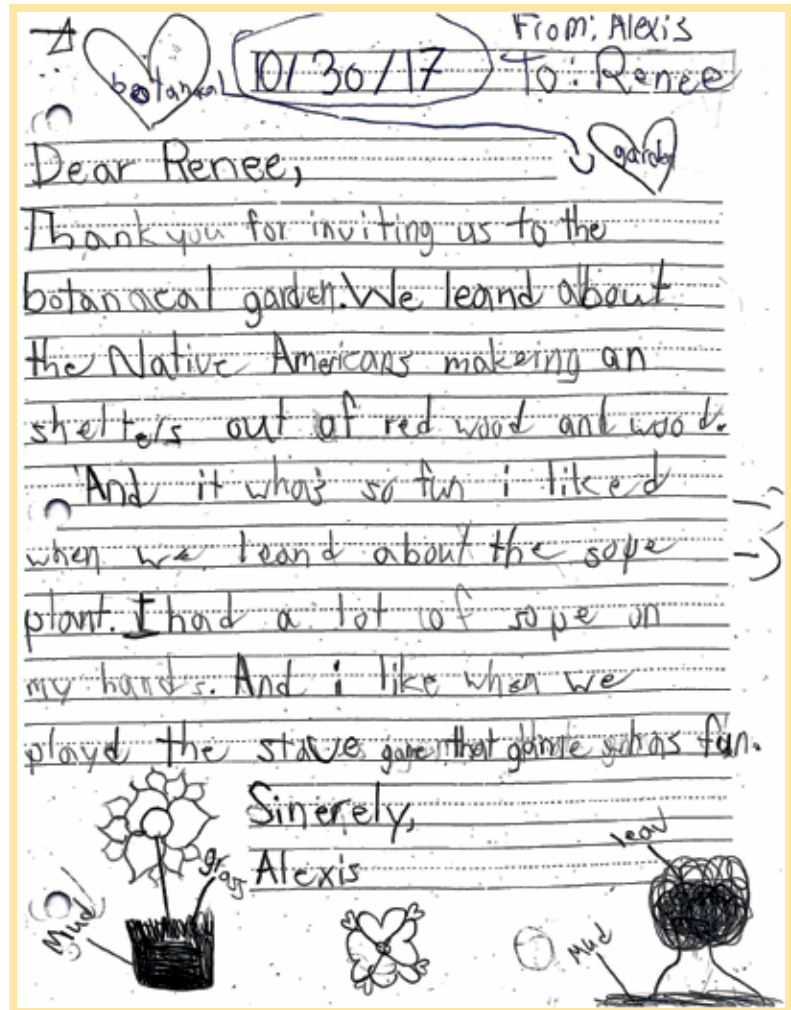 From: Alexis
botanacal 10/30/17 To: Renee
garden
Dear Renee,
Thank you for inviting us to the
botanacal garden. We leand about
the Native Americans makeing an
shelters out of red wood and wood.
And it whas so fun i liked
when we leand about the sope
plant. I had a lot of sope on
my hands. And i like when we
playd the stave game that game whas fun.
Sinerely,
Alexis
grass
Mud
leav
Mud